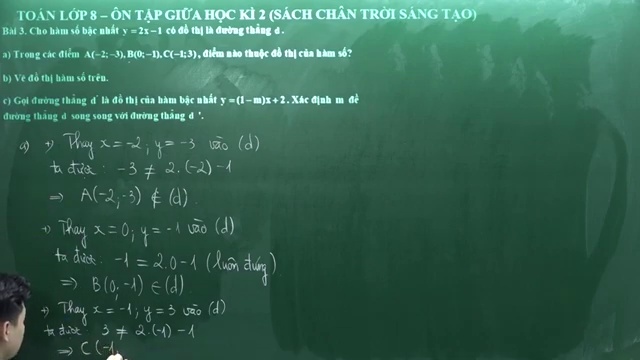 TOÁN LỚP 8 – ÔN TẬP GIỮA HỌC KÌ 2 (SÁCH CHÂN TRỜI SÁNG TẠO)
Bài 3. Cho hàm số bậc nhất y = 2x−1 có đồ thị là đường thẳng d.
a) Trong các điểm A(−2;−3), B(0;−1), C(−1;3), điểm nào thuộc đồ thị của hàm số?
b) Vẽ đồ thị hàm số trên.
c) Gọi đường thẳng d' là đồ thị của hàm bậc nhất y = (1−m)x + 2. Xác định m để
đường thẳng d song song với đường thẳng d '.
a) +) Thay x = −2; y = −3 vào (d)
ta được: −3 ≠ 2.(−2) −1
⇒ A(−2;−3) ∉ (d).
+) Thay x = 0; y = −1 vào (d)
ta được: −1 = 2.0 −1 (luôn đúng)
⇒ B(0;−1) ∈ (d)
+) Thay x = −1; y = 3 vào (d)
ta được 3 ≠ 2.(−1) − 1
⇒ C(−1